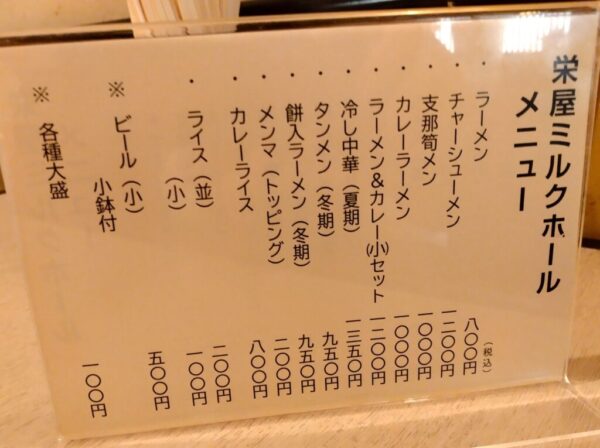 栄屋ミルクホール
メニュー
・ラーメン 八〇〇円（税込）
・チャーシューメン 一二〇〇円
・支那筍メン 一〇〇〇円
・カレーラーメン 一〇〇〇円
・ラーメン＆カレー(小)セット 一二〇〇円
・冷し中華（夏期） 一三五〇円
・タンメン（冬期） 九五〇円
・餅入ラーメン（冬期） 九五〇円
・メンマ（トッピング） 二〇〇円
・カレーライス 八〇〇円
・ライス（並） 二〇〇円
（小） 一〇〇円
※ ビール（小） 五〇〇円
小鉢付
※ 各種大盛 一〇〇円